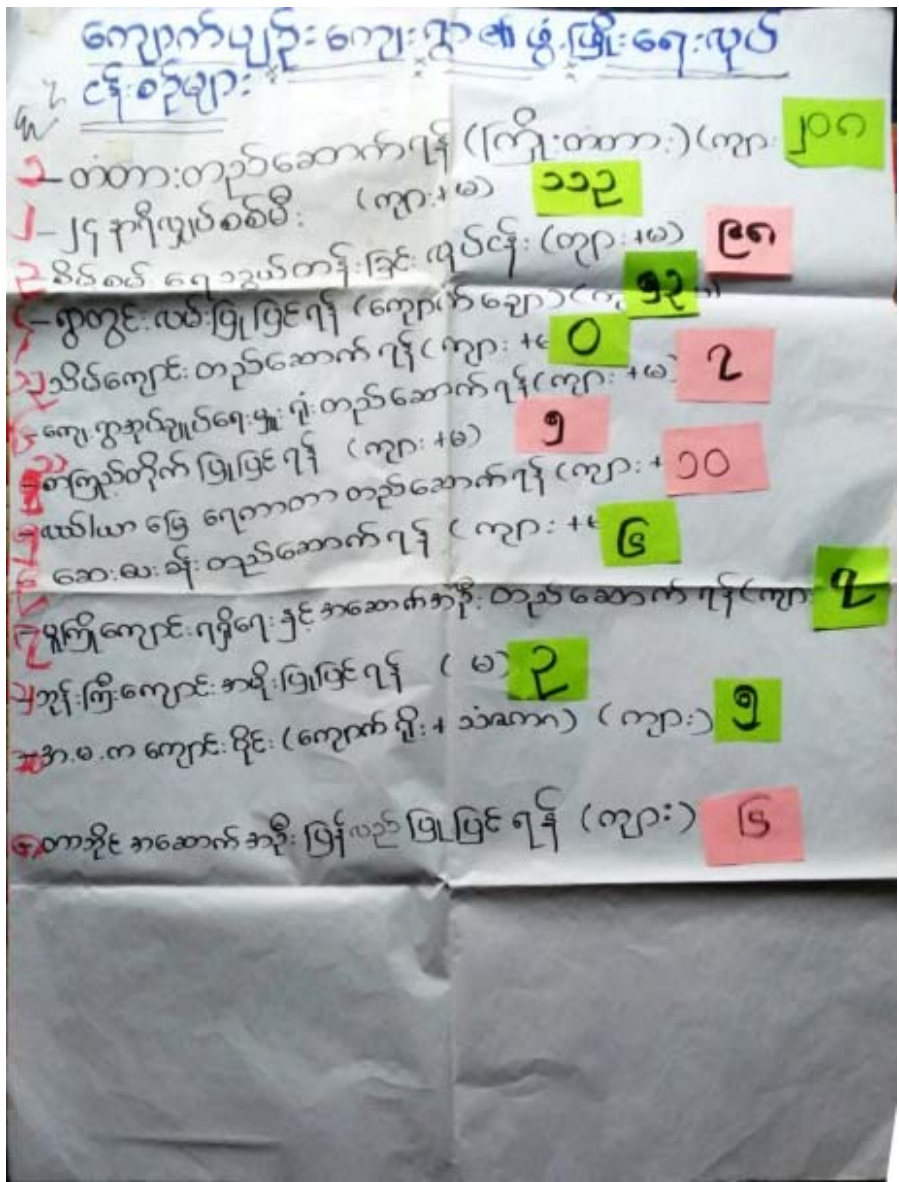 ကျောက်ပျဉ်းကျေးရွာ၏ ဖွံ့ဖြိုးရေးလုပ်
ငန်းစဉ်များ
၁ - တံတားတည်ဆောက်ရန် (ကြိုးတံတား) (ကျား ၂၀၈
- ၂၄ နာရီလျှပ်စစ်မီး (ကျား+မ) ၁၁၃
စိမ်စမ် ရေသွယ်တန်းခြင်း လုပ်ငန်း (ကျား+မ)
- ရွာတွင်းလမ်းပြုပြင်ရန် (ကျောက်ချော)
သိမ်ကျောင်းတည်ဆောက်ရန် (ကျား + ၀
ကျေးရွာအုပ်ချုပ်ရေးမှူးရုံးတည်ဆောက်ရန် (ကျား+မ) ၇
စာကြည့်တိုက် ပြုပြင်ရန် (ကျား+မ) ၅
လယ်ယာမြေ ရေကာတာ တည်ဆောက်ရန် (ကျား + ၁၀
ဆေးပေးခန်းတည်ဆောက်ရန် (ကျား + ၆
မူကြိုကျောင်းရရှိရေးနှင့် အဆောက်အဦးတည်ဆောက်ရန် (ကျား ၇
ဘုန်းကြီးကျောင်းအမိုးပြုပြင်ရန် (မ) ၃
အ.မ.က ကျောင်းဝိုင်း (ကျောက်ရိုး + သံဇကာ) (ကျား) ၅
တာဘိုင် အဆောက်အဦး ပြန်လည်ပြုပြင်ရန် (ကျား) ၆